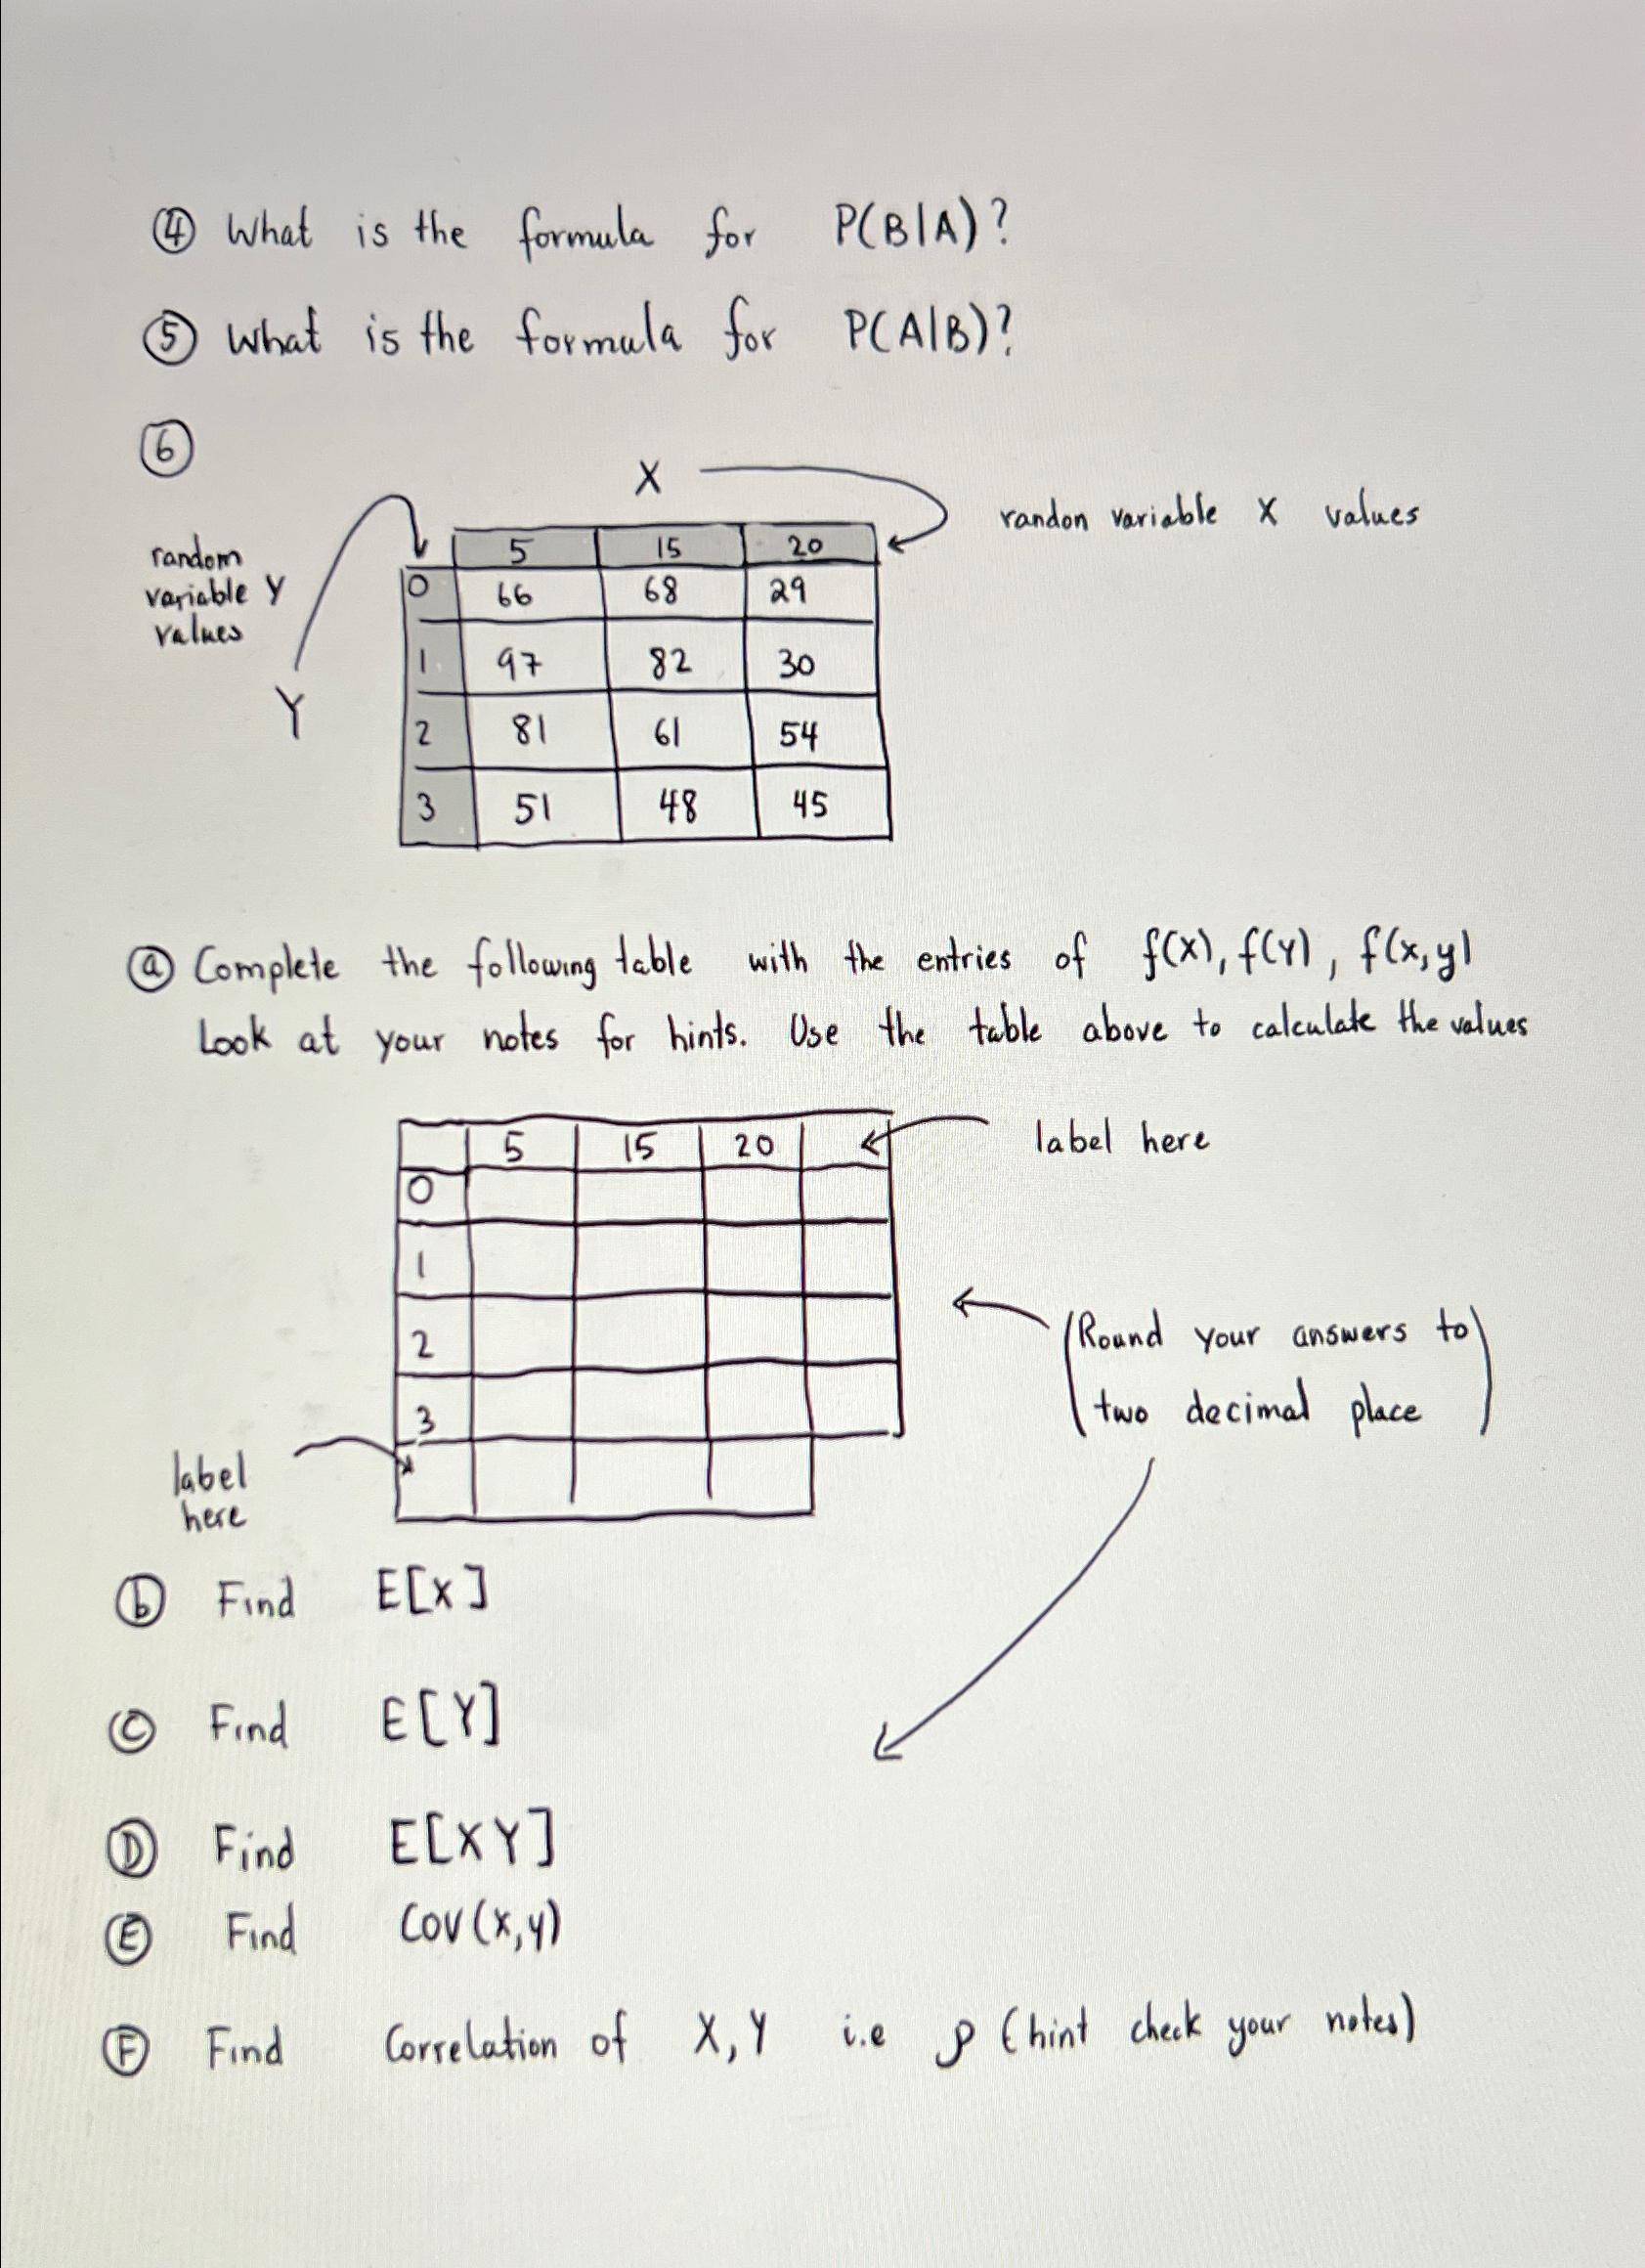 ④ What is the formula for P(B|A)?
⑤ What is the formula for P(A|B)?
⑥
X
randon variable X values
random
variable Y
values
Y
5 15 20
0 66 68 29
1 97 82 30
2 81 61 54
3 51 48 45
ⓐ Complete the following table with the entries of f(x), f(Y), f(x,y)
Look at your notes for hints. Use the table above to calculate the values
5 15 20
label here
0
1
2
3
(Round your answers to
two decimal place)
label
here
ⓑ Find E[X]
ⓒ Find E[Y]
Ⓓ Find E[XY]
Ⓔ Find Cov(x,y)
Ⓕ Find Correlation of X,Y i.e ρ (hint check your notes)